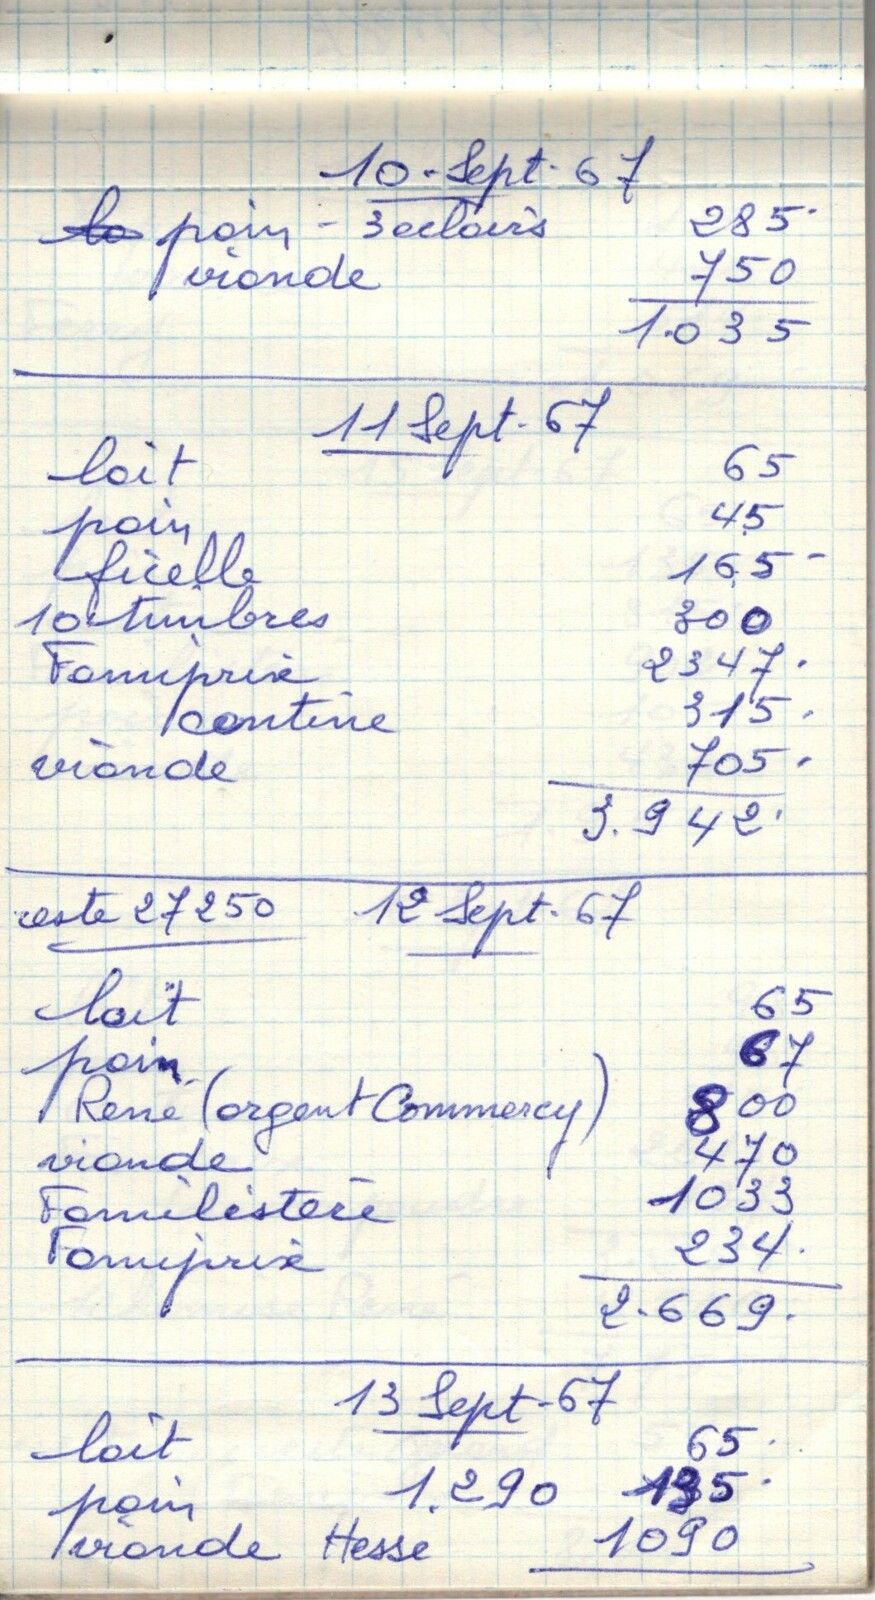 10 - Sept - 67
pain - 3 eclairs 285
viande 750
1.035
11 Sept - 67
lait 65
pain 45
ficelle 165
10 timbres 300
Famiprix 2347
cantine 315
viande 705
3.942
reste 27250 12 Sept - 67
lait 65
pain 67
René (argent Commercy) 800
viande 470
Familistère 1033
Famiprix 234
2.669
13 Sept - 67
lait 65
pain 1.290 135
viande Hesse 1090